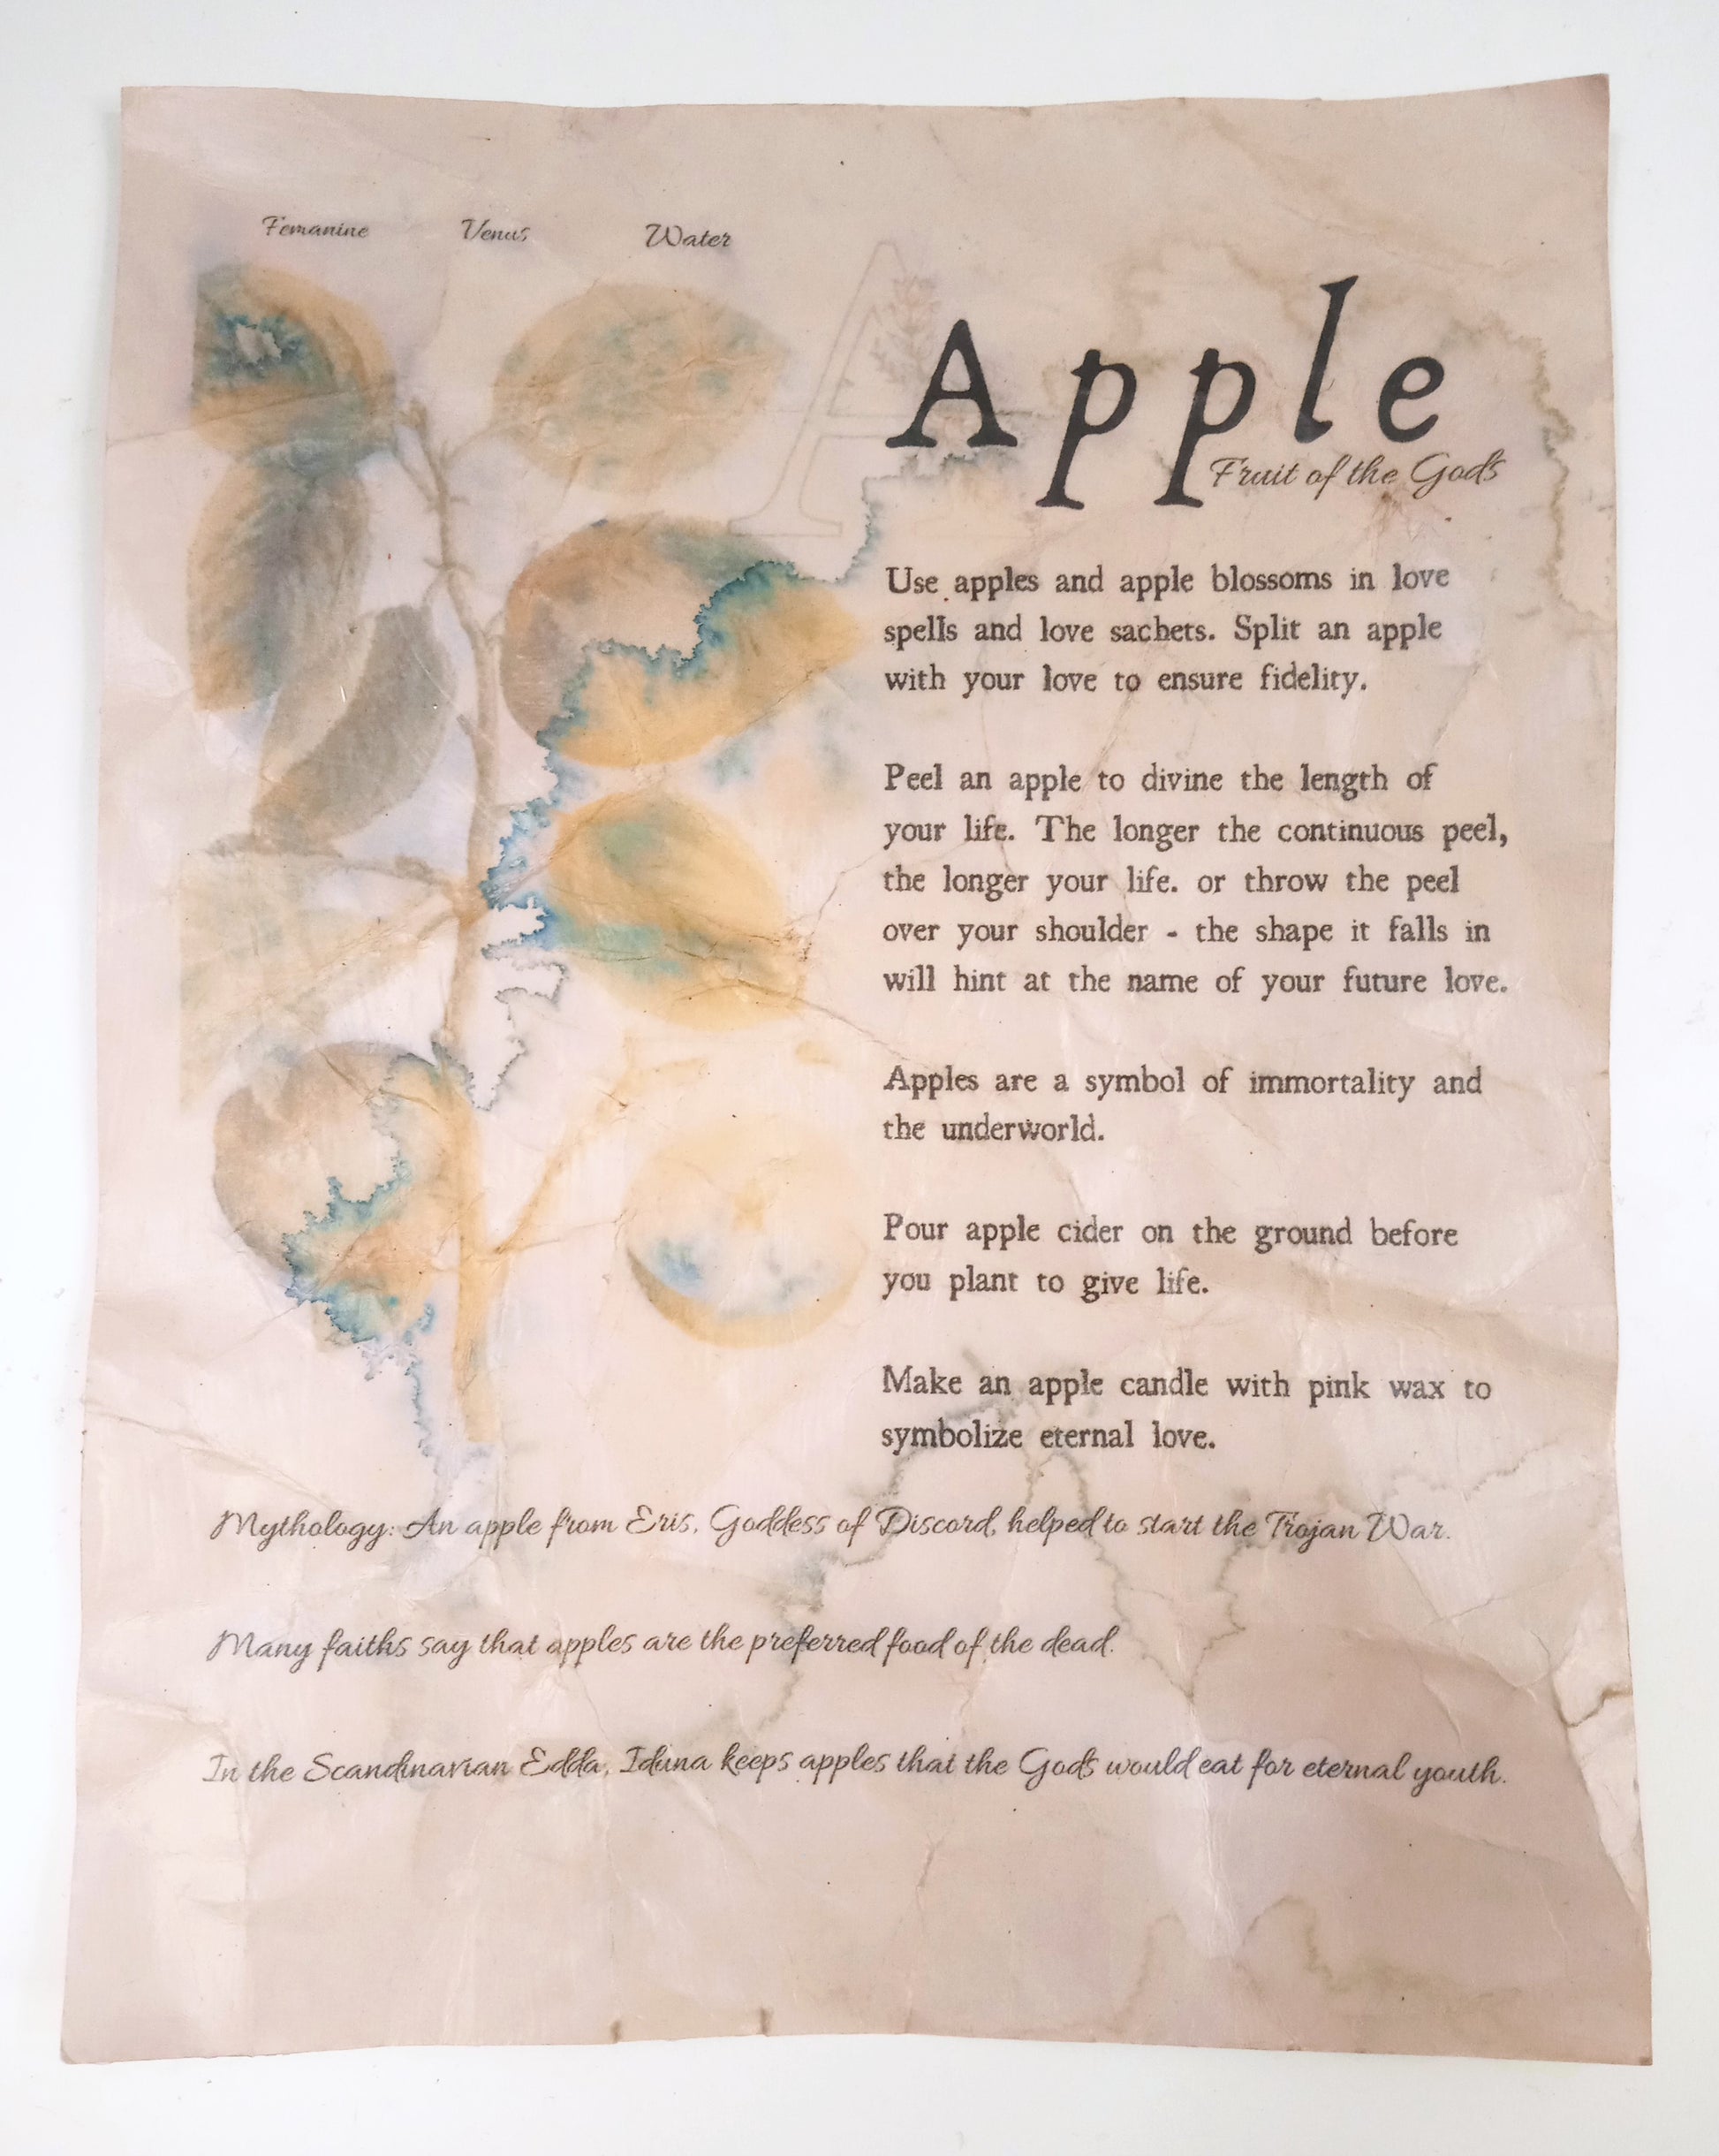 Femanine Venus Water
Apple
Fruit of the Gods
Use apples and apple blossoms in love
spells and love sachets. Split an apple
with your love to ensure fidelity.
Peel an apple to divine the length of
your life. The longer the continuous peel,
the longer your life. or throw the peel
over your shoulder - the shape it falls in
will hint at the name of your future love.
Apples are a symbol of immortality and
the underworld.
Pour apple cider on the ground before
you plant to give life.
Make an apple candle with pink wax to
symbolize eternal love.
Mythology: An apple from Eris, Goddess of Discord, helped to start the Trojan War.
Many faiths say that apples are the preferred food of the dead.
In the Scandinavian Edda, Iduna keeps apples that the Gods would eat for eternal youth.